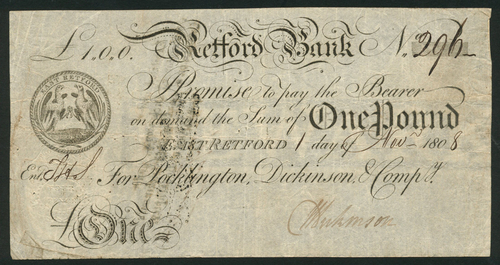 £1.0.0. Retford Bank No. 296
EAST RETFORD
I Promise to pay the Bearer
on demand the Sum of One Pound
EAST RETFORD 1 day of Novr. 1808
Entd.
For Pocklington, Dickinson, & Compy.
£One
Dickinson